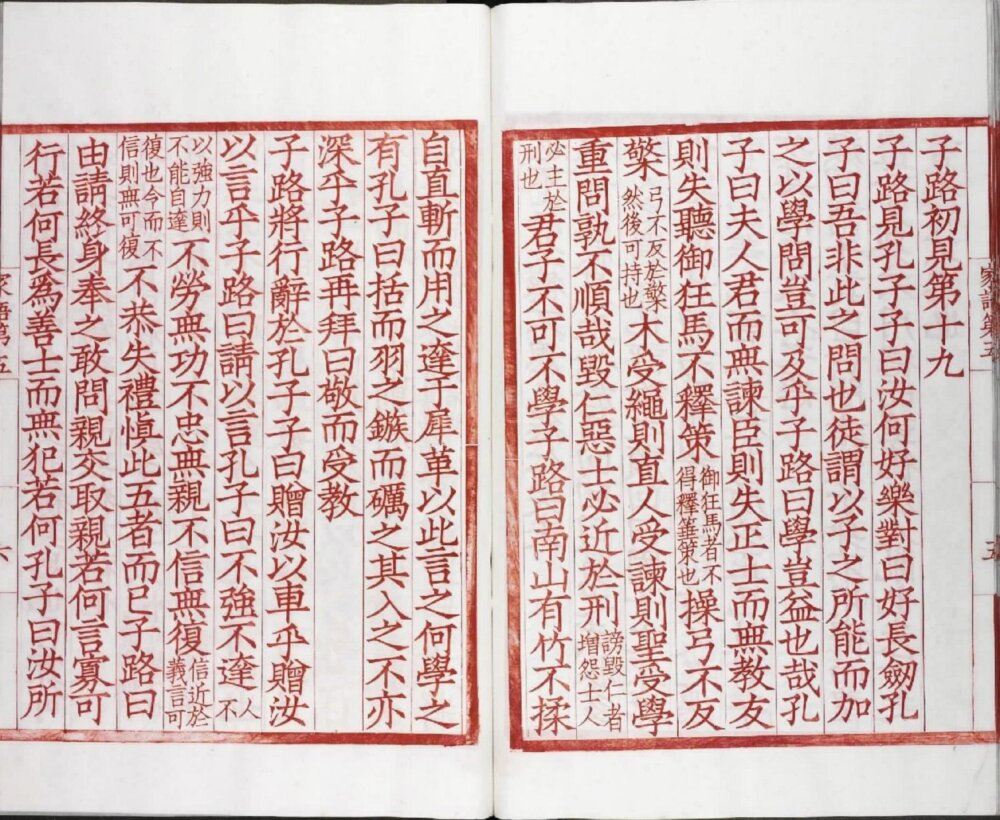 子路初見第十九
子路見孔子子曰汝何好樂對曰好長劒孔
子曰吾非此之問也徒謂以子之所能而加
之以學問豈可及乎子路曰學豈益也哉孔
子曰夫人君而無諫臣則失正士而無教友
則失聽御狂馬不釋策御狂馬者不得釋箠策也操弓不反
檠弓不反於檠然後可持也木受繩則直人受諫則聖受學
重問孰不順哉毀仁惡士必近於刑謗毀仁者增怨士人
必主於刑也君子不可不學子路曰南山有竹不揉
自直斬而用之達于犀革以此言之何學之
有孔子曰括而羽之鏃而礪之其入之不亦
深乎子路再拜曰敬而受教
子路將行辭於孔子子曰贈汝以車乎贈汝
以言乎子路曰請以言孔子曰不強不達人不
以強力則不能自達不勞無功不忠無親不信無復信近於義言可
復也今而不信則無可復不恭失禮愼此五者而已子路曰
由請終身奉之敢問親交取親若何言寡可
行若何長爲善士而無犯若何孔子曰汝所